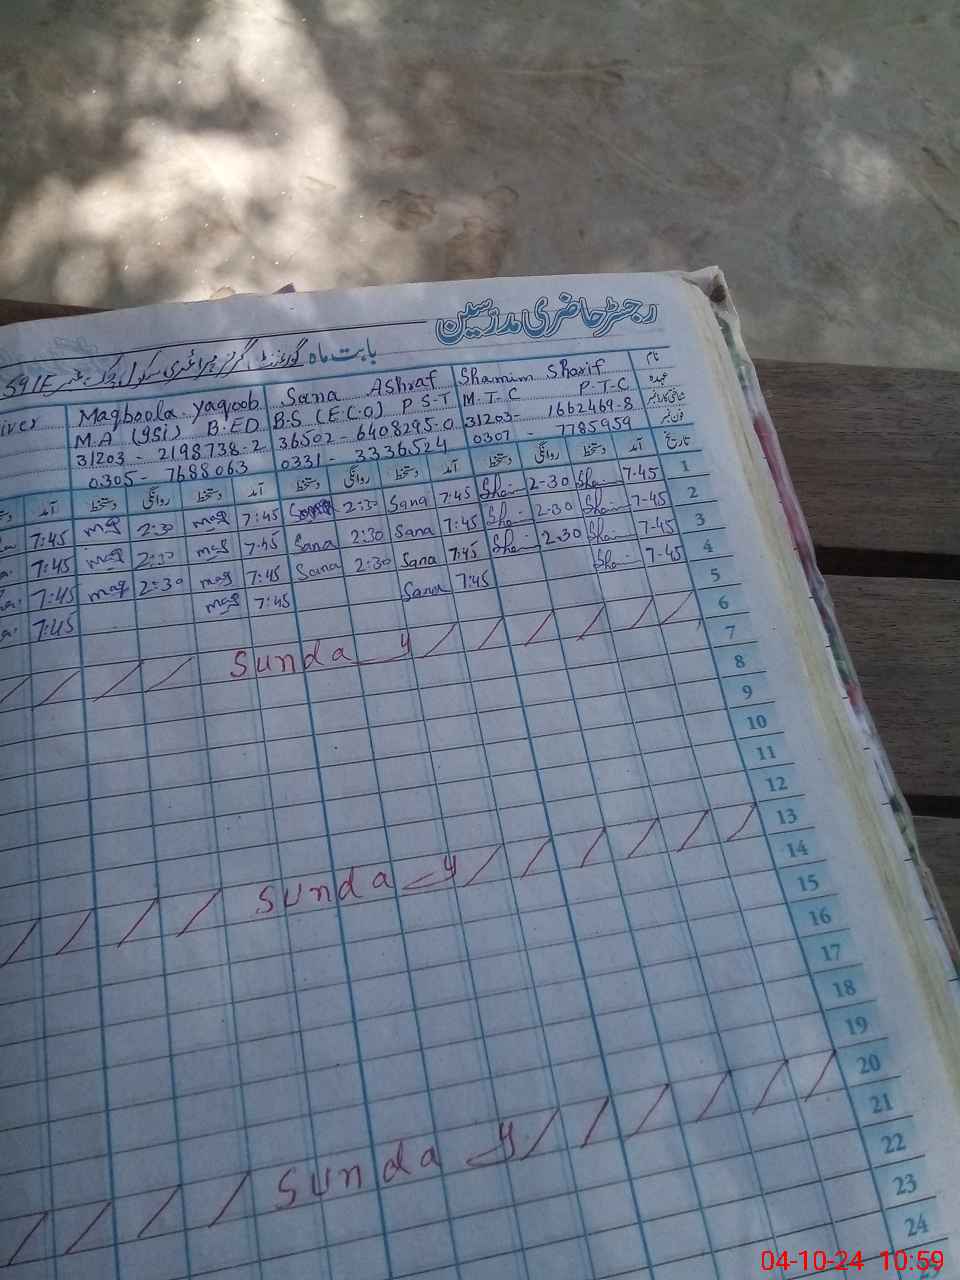 رجسٹر حاضری مدرسین
بابت ماہ گورنمنٹ گرلز پرائمری سکول چک نمبر 59/E
نام Shamim Sharif Sana Ashraf Maqboola yaqoob
عہدہ M.T-C P.T-C B.S (E.C.O) P S-T M.A (ISI) B.ED
شناختی کارڈ نمبر 31203- 1662469-8 36502-6408295-0 31203-2198738-2
فون نمبر 0307 - 7785959 0331-3336524 0305-7688063
تاریخ آمد دستخط روانگی دستخط آمد دستخط روانگی دستخط آمد دستخط روانگی دستخط آمد
1 7-45 Sham 2-30 Sham 7:45 Sana 2:30 Sana 7:45 maq 2:30 maq 7:45
2 7-45 Sham 2-30 Sham 7:45 Sana 2:30 Sana 7:45 maq 2:30 maq 7:45
3 7-45 Sham 2-30 Sham 7:45 Sana 2:30 Sana 7:45 maq 2:30 maq 7:45
4 7-45 Sham 7:45 Sana 7:45 maq 7:45
5
6 Sunday
7
8
9
10
11
12
13 Sunday
14
15
16
17
18
19
20 Sunday
21
22
23
24
25
04-10-24 10:59